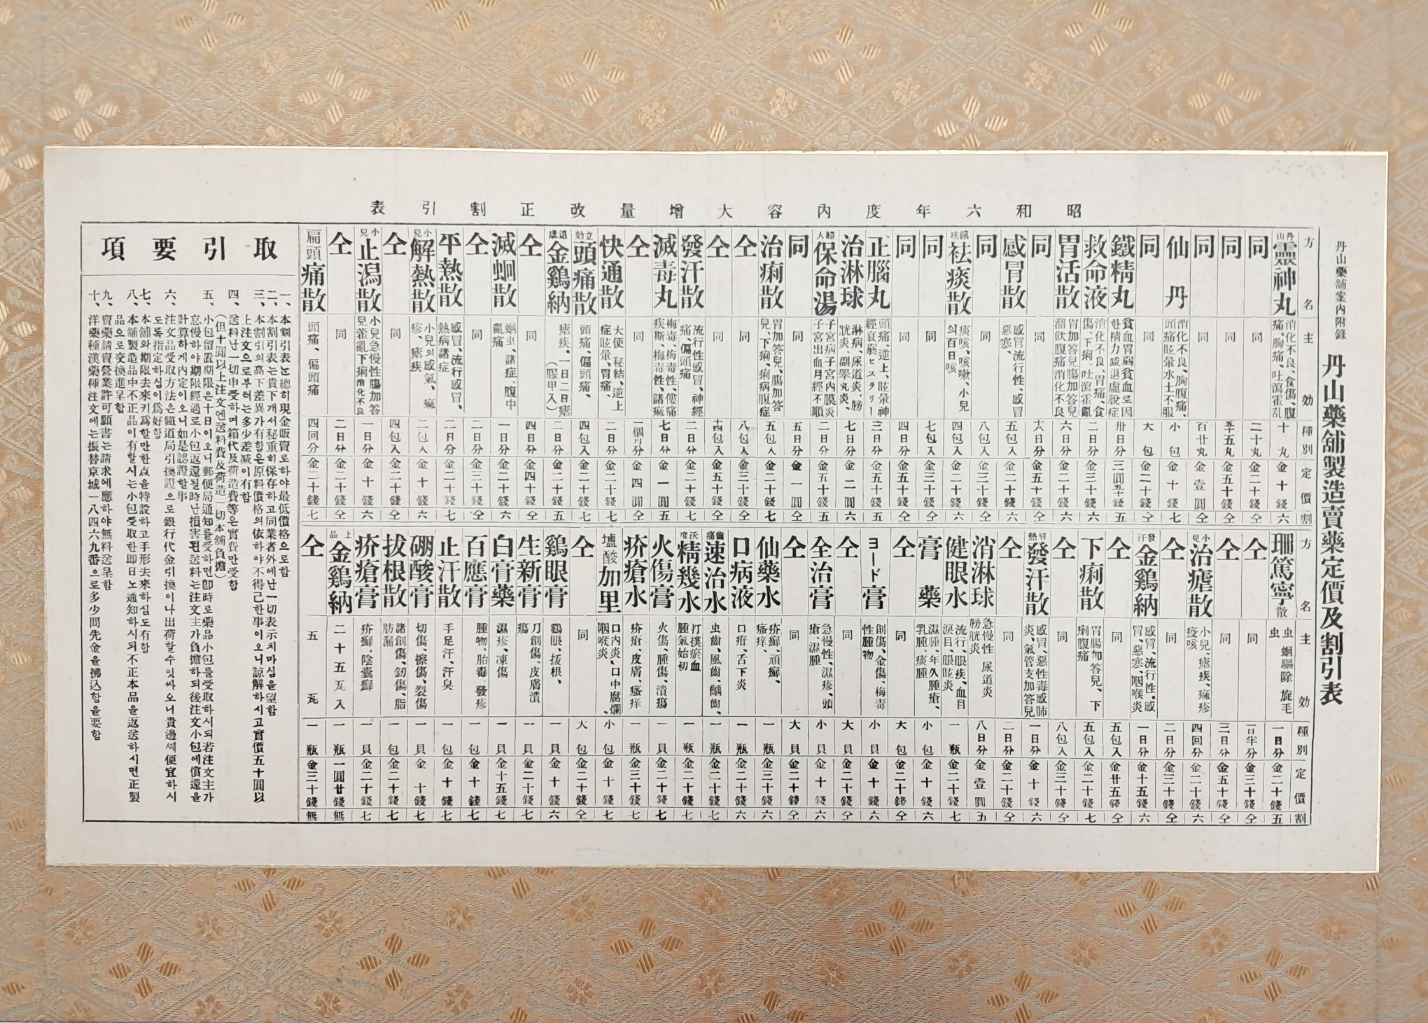 丹山藥舖案內附錄
丹山藥舖製造賣藥定價及割引表
昭和六年度內容大增量改正割引表
方名
主效
種別
定價
割
丹山靈神丸
消化不良、食傷、腹痛、胸痛、吐瀉霍亂
十丸
金十錢
六
同
二十丸
金二十錢
仝
同
金五十錢
仝
同
百廿丸
金壹圓
仝
仙丹
消化不良、胸腹痛、頭痛眩暈水土不服
小包
金十錢
六
同
大包
金二十錢
仝
鐵精丸
卅日分
五
救命液
消化不良、胃痛、食傷、下痢、吐瀉霍亂
金二十錢
六
胃活散
胃加答兒腸加答兒溜飲腹痛消化不良
六日分
金二十錢
六
同
金五十錢
仝
感冒散
感冒流行性、感冒惡寒
五包入
金二十錢
六
同
八包入
金三十錢
仝
祛痰散
痰咳、咳嗽、小兒의百日咳
四包入
金二十錢
六
同
七包入
金三十錢
仝
同
四日分
金五十錢
仝
正腦丸
頭痛、逆上、眩暈神經衰弱ヒステリー
三日分
金三十錢
五
治淋球
淋病、尿道炎、膀胱炎、副睾丸炎
金二圓
六
婦人保命湯
子宮病子宮內膜炎子宮出血月經不順
二日分
金五十錢
五
同
五日分
金一圓
仝
治痢散
胃加答兒、腸加答兒、下痢、痢病腹症
五包入
金二十錢
七
仝
八包入
金三十錢
仝
仝
金五十錢
仝
發汗散
流行性感冒、神經痛、偏頭痛
二日分
金二十錢
六
滅毒丸
七日分
金一圓
五
仝
同
金四圓
仝
快通散
大便、秘結、逆上症眩暈、胃痛、
二日分
金二十錢
七
立効頭痛散
頭痛、偏頭痛、
四包入
金二十錢
仝
金鷄納
瘧疾、一日二日瘧(膠甲入)
二日分
金二十錢
五
仝
同
四日分
金四十錢
仝
滅蛔散
蛔虫、諸症、腹中亂痛
一日分
金二十錢
六
仝
同
二日分
仝
平熱散
感冒、流行感冒、熱病諸症
二日分
金二十錢
七
小兒解熱散
小兒의感氣、痲疹、瘧疾
金十錢
六
仝
同
四包入
金二十錢
仝
小兒止瀉散
小兒急慢性腸加答兒霍亂下痢消化不良
一日分
金十錢
六
仝
同
二日分
金二十錢
仝
扁頭痛散
頭痛、偏頭痛
四回分
金二十錢
七
方名
主效
種別
定價
割
珊篤寧散
虫、蛔驅除、旋毛虫
一日分
金二十錢
五
仝
金三十錢
仝
仝
三日分
金五十錢
仝
小兒治瘧散
小兒、瘧疾、痲疹疫咳
四回分
金二十錢
六
仝
二日分
金三十錢
仝
金鷄納
感冒、流行性、感冒、惡寒、咽喉炎
一日分
金十五錢
六
仝
五包入
金廿五錢
仝
下痢散
胃腸加答兒、下痢腹痛
五包入
金二十錢
七
仝
八包入
金三十錢
仝
發汗散
感冒、惡性毒感肺炎、氣管支加答兒
一日分
金十錢
六
仝
同
二日分
金二十錢
仝
消淋球
急慢性、尿道炎膀胱炎
八日分
金壹圓
五
健眼水
流行、眼疾、血目淚目、眼眩炎
一瓶
金二十錢
七
膏藥
小包
金十錢
六
仝
同
大包
金二十錢
仝
ヨード膏
創傷、金傷、梅毒性腫物
小貝
金十錢
六
仝
同
大貝
金二十錢
仝
全治膏
急慢性、濕疹、頭瘡、濕腫
小貝
金十錢
六
仝
同
大貝
金二十錢
仝
仙藥水
疥癬、頑癬、瘙痒
一瓶
金三十錢
六
口病液
口疳、舌下炎
一瓶
金二十錢
七
齒痛速治水
虫齒、風齒、齲齒、
一瓶
金二十錢
仝
精幾水
打撲瘀血、腫氣始初
一瓶
金二十錢
七
火傷膏
火傷、腫傷、潰瘍
一貝
金二十錢
六
疥瘡水
疥瘡、皮膚、瘙痒
一瓶
金三十錢
七
塩酸加里
口內炎、口中腐爛咽喉炎
小包
金十錢
七
仝
同
大包
金二十錢
仝
鷄眼膏
鷄眼、拔根、
一貝
金十錢
六
生新膏
刀創傷、皮膚潰瘍
一貝
金二十錢
七
白膏藥
濕疹、凍傷
一貝
金十五錢
七
百應膏
腫物、胎毒、發疹
一包
金十錢
七
止汗散
手足汗、汗臭
一包
金十錢
七
硼酸膏
切傷、擦傷、裂傷
一貝
金十錢
七
拔根散
諸創傷、刼傷、脂肪漏
一包
金二十錢
七
疥瘡膏
疥癬、陰囊癬
一貝
金二十錢
七
上品金鷄納
二十五瓦入
一瓶
一圓廿錢
無
仝
五瓦
一瓶
金三十錢
無
取引要項
一、本割引表는總히現金販賣로하야最低價格으로함
二、本割引表는貴下개서秘重히保存하고同業者外에난一切表示치마심을望함
三、本割引의高下差異가有함은原料價格의依하야不得己한事이오니諒解하시고實價五十圓以上注文으로부터는多少差減이有함
四、送料난一切申受하며箱代及荷造費等은實費만受함
(但十圓以上注文엔送料費及荷造一切本舖負擔)
五、小包留置期限은十日이오니郵便局通知를受하면卽時로藥品小包를受取하시되若注文主가怠慢하야期限經過로小包返還될時난損害된送料는注文主가負擔하되後注文小包에償還을計算하기로內定이오니如是認證할事
六、注文品受取方法은鐵道局引換證으로銀行代金引換이나出荷할수잇싸오니貴邊에便宜하시도록指定하심이爲好함
七、本舖와期限去來키爲할만한点을特設하고手形去來하심도有함
八、本舖製造品中不正品이有할시는小包受取한卽日노通知하시되不正本品을返送하시면正製品으로交換進呈함
九、賣藥請賣營業許可願書는請求에應하야無料送呈함
十、洋藥種漢藥種注文에는振替京城一八四六九番으로多少間先金을拂込함을要함